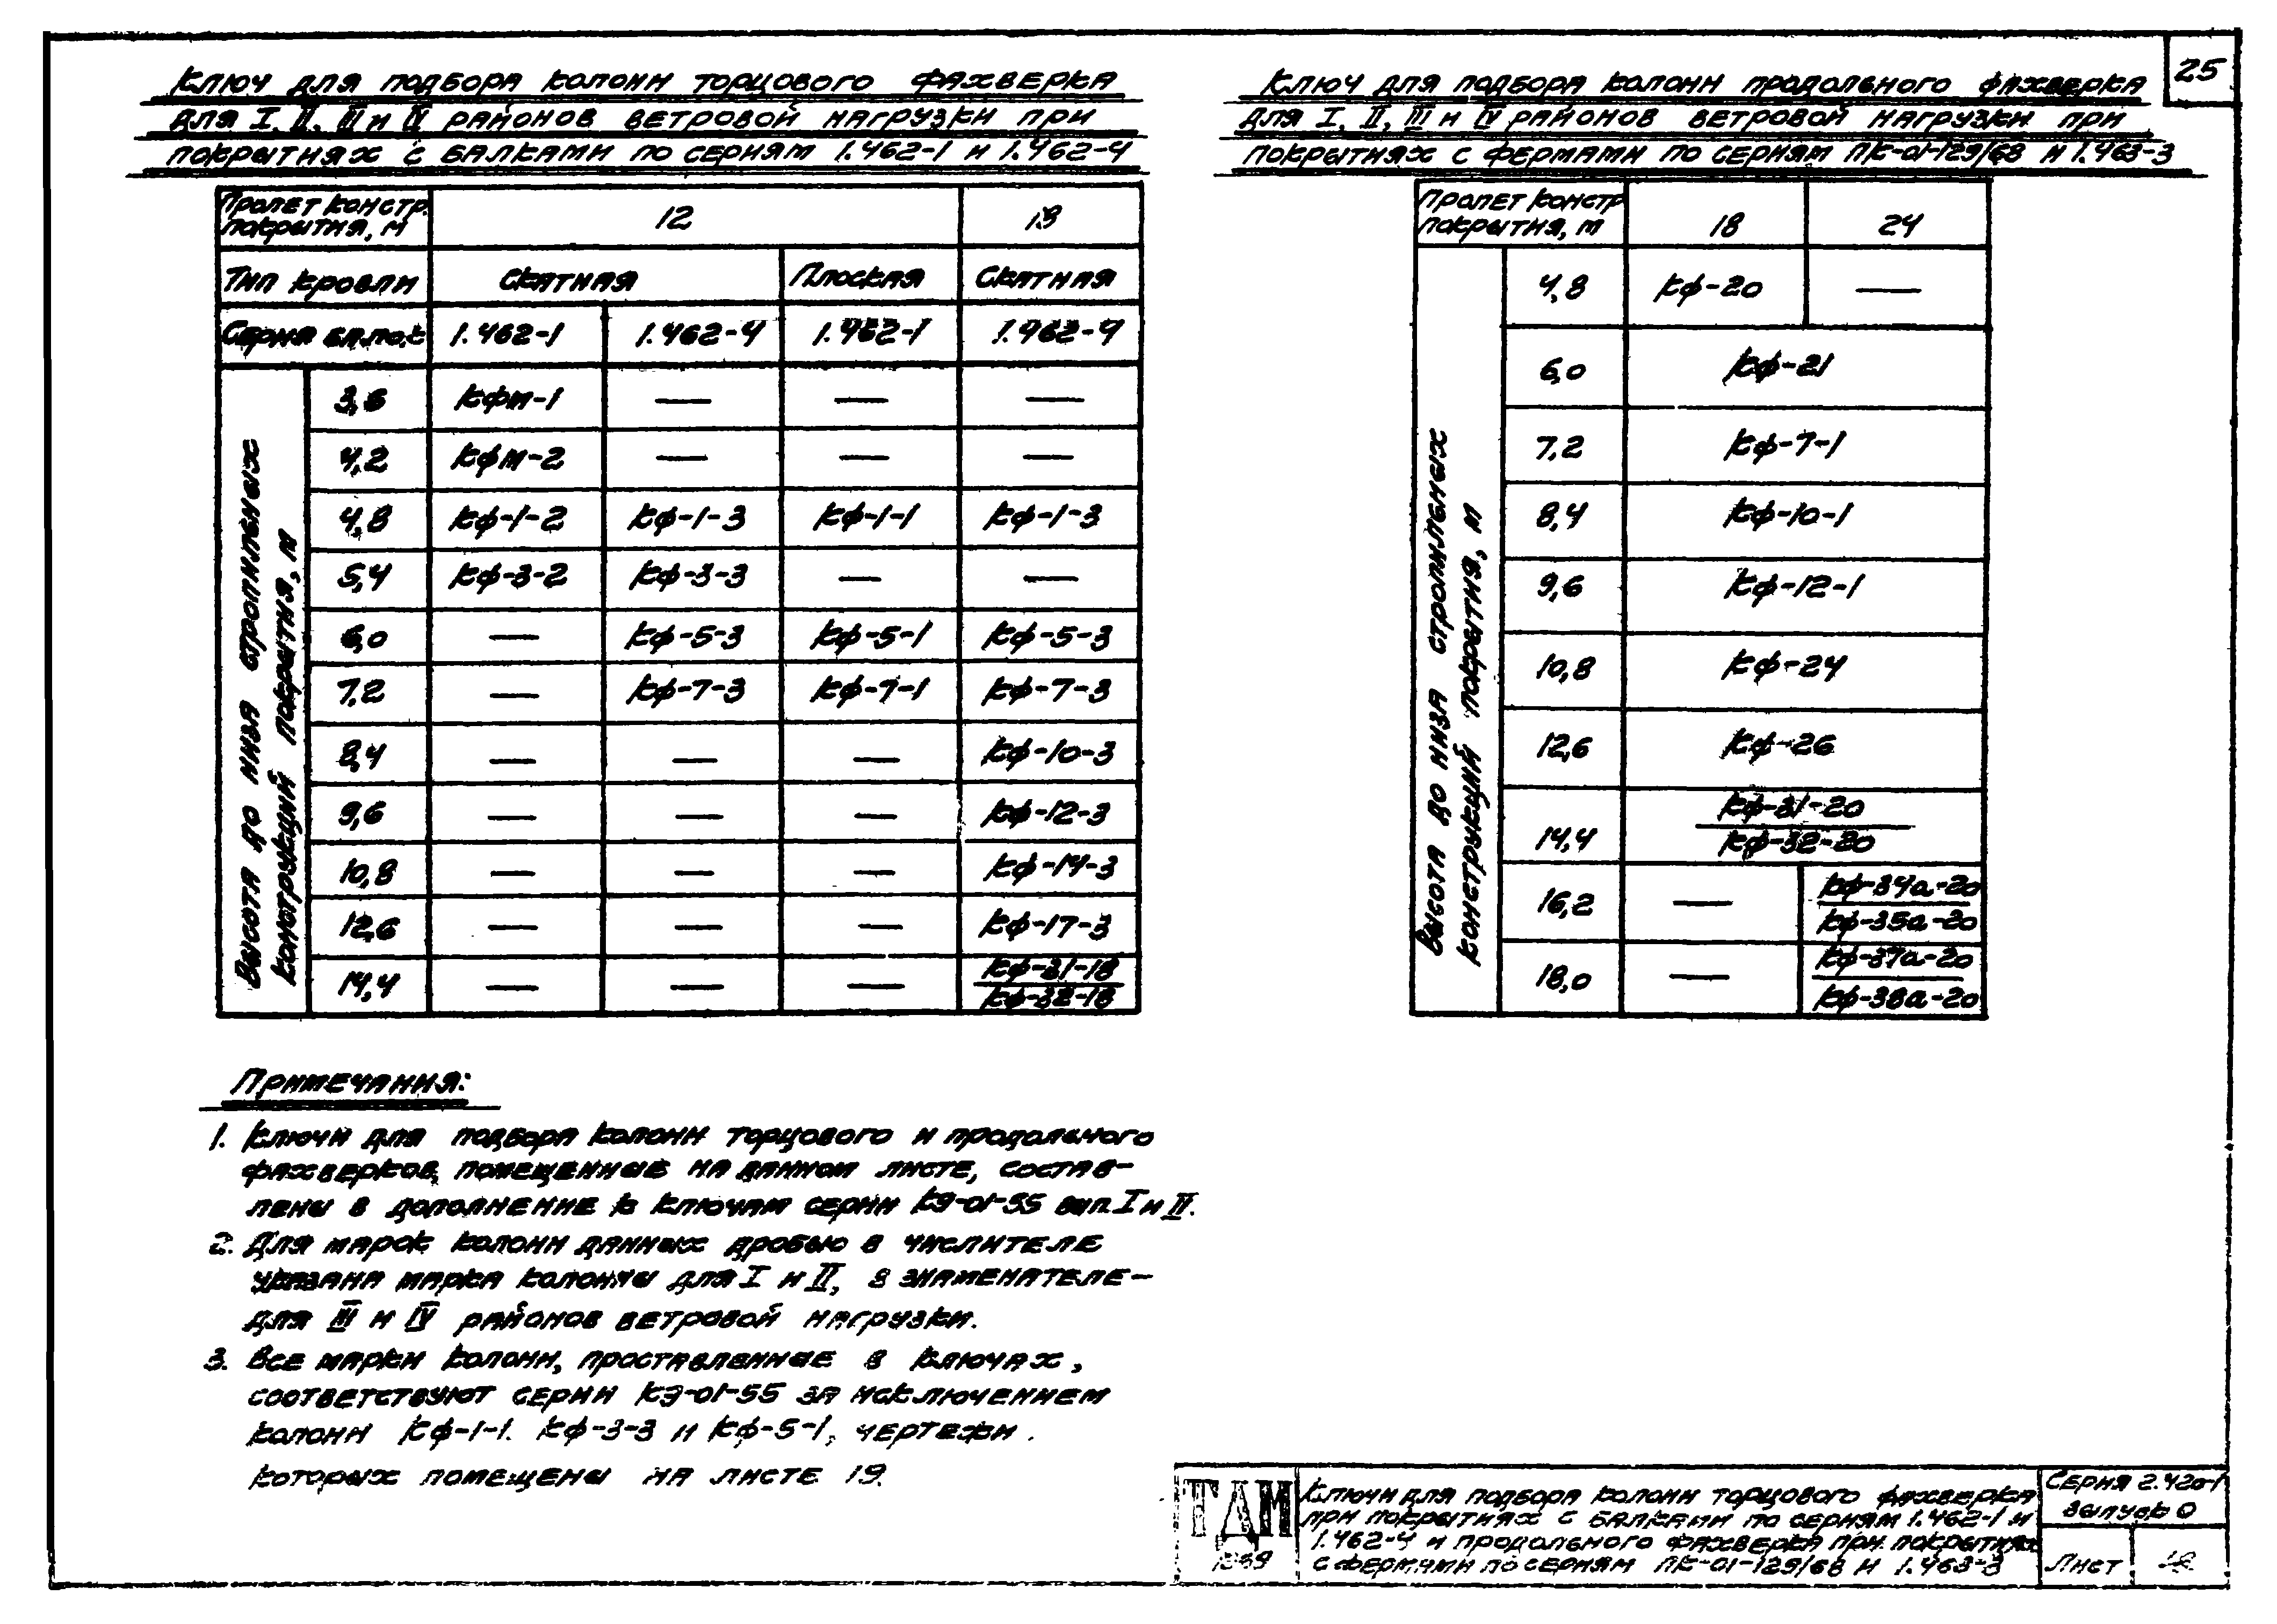 25
Ключ для подбора колонн торцового фахверка
для I, II, III и IV районов ветровой нагрузки при
покрытиях с балками по сериям 1.462-1 и 1.462-4
Пролет констр. покрытия, м | 12 | 18
Тип кровли | Скатная | Плоская | Скатная
Серия балок | 1.462-1 | 1.462-4 | 1.462-1 | 1.462-4
Высота до низа стропильных
конструкций покрытия, м
3,6 | КФМ-1 | — | — | —
4,2 | КФМ-2 | — | — | —
4,8 | КФ-1-2 | КФ-1-3 | КФ-1-1 | КФ-1-3
5,4 | КФ-3-2 | КФ-3-3 | — | —
6,0 | — | КФ-5-3 | КФ-5-1 | КФ-5-3
7,2 | — | КФ-7-3 | КФ-7-1 | КФ-7-3
8,4 | — | — | — | КФ-10-3
9,6 | — | — | — | КФ-12-3
10,8 | — | — | — | КФ-14-3
12,6 | — | — | — | КФ-17-3
14,4 | — | — | — | КФ-31-18
КФ-32-18
Ключ для подбора колонн продольного фахверка
для I, II, III и IV районов ветровой нагрузки при
покрытиях с фермами по сериям ПК-01-129/68 и 1.463-3
Пролет констр покрытия, м | 18 | 24
Высота до низа стропильных
конструкций покрытия, м
4,8 | КФ-20 | —
6,0 | КФ-21
7,2 | КФ-7-1
8,4 | КФ-10-1
9,6 | КФ-12-1
10,8 | КФ-24
12,6 | КФ-26
14,4 | КФ-31-20
КФ-32-20
16,2 | — | КФ-34а-20
КФ-35а-20
18,0 | — | КФ-37а-20
КФ-38а-20
Примечания:
1. Ключи для подбора колонн торцового и продольного
фахверков, помещенные на данном листе, состав-
лены в дополнение к ключам серии КЭ-01-55 вып. I и II.
2. Для марок колонн данных дробью в числителе
указана марка колонны для I и II, в знаменателе-
для III и IV районов ветровой нагрузки.
3. Все марки колонн, проставленные в ключах,
соответствуют серии КЭ-01-55 за исключением
колонн КФ-1-1. КФ-3-3 и КФ-5-1, чертежи
которых помещены на листе 19.
ТДМ
Ключи для подбора колонн торцового фахверка
при покрытиях с балками по сериям 1.462-1 и
1.462-4 и продольного фахверка при покрытиях
с фермами по сериям ПК-01-129/68 и 1.463-3
Серия 2.420-1
выпуск 0
Лист